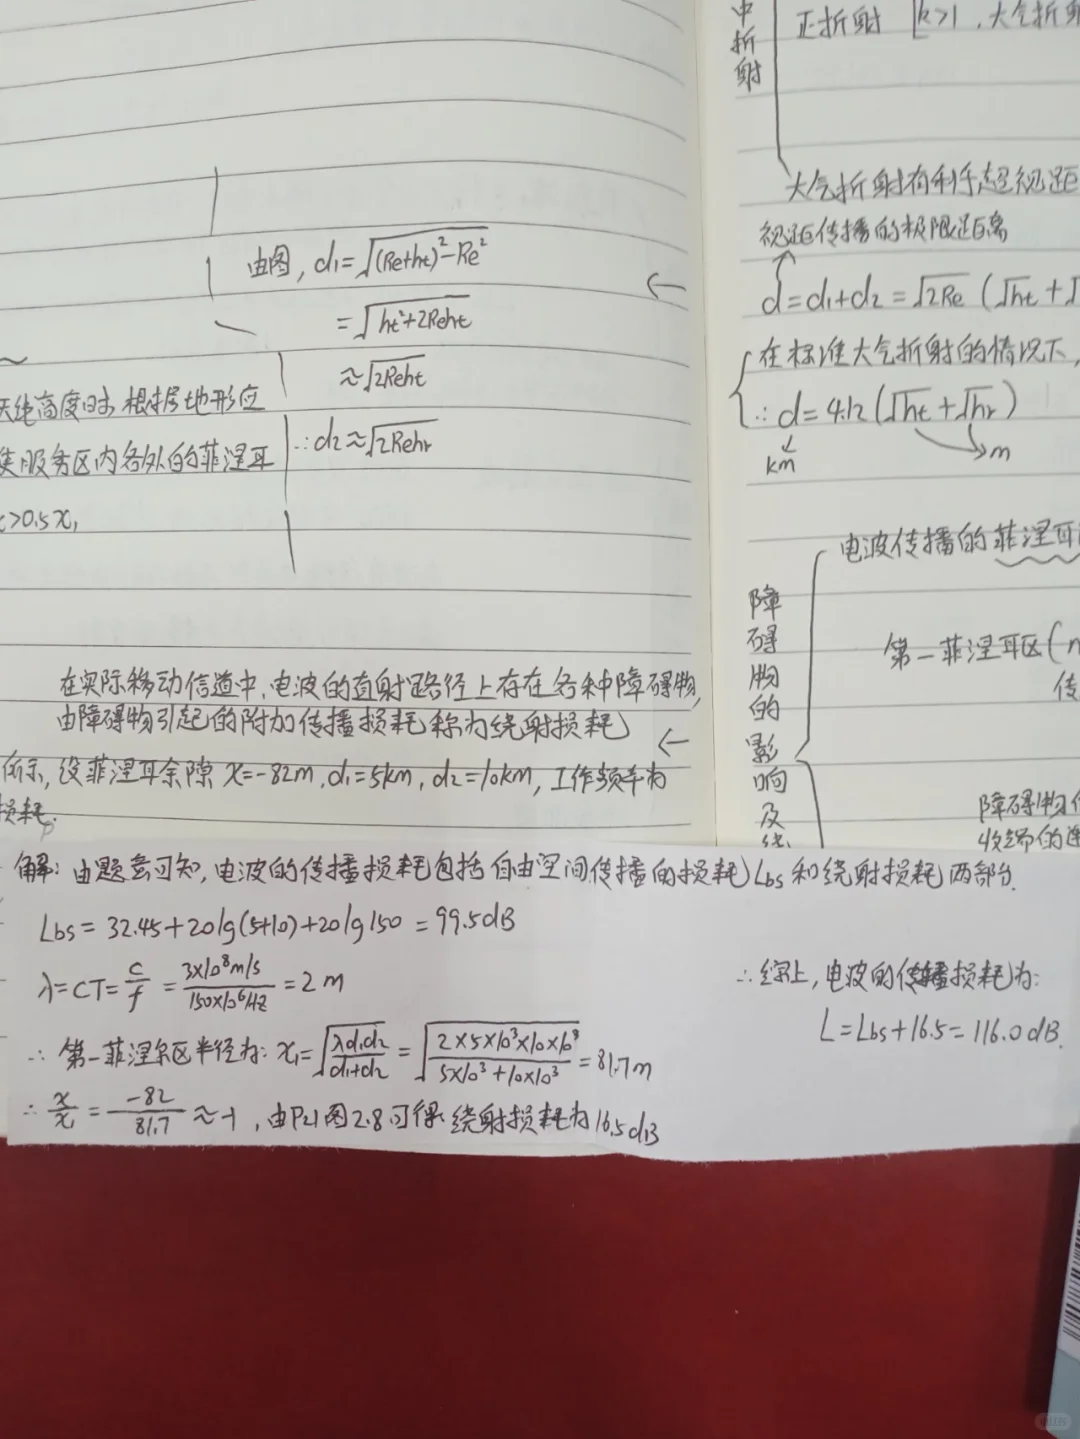 由图, d₁=√((Re+ht)²-Re²)
=√(ht²+2Reht)
≈√(2Reht)
∴d₂≈√(2Rehr)
天线高度时,根据地形应
服务区内各处的菲涅耳
>0.5x₁
在实际移动信道中,电波的直射路径上存在各种障碍物,
由障碍物引起的附加传播损耗称为绕射损耗
←
所示,设菲涅耳余隙 x=-82m, d₁=5km, d₂=10km, 工作频率为
损耗.
中折射
正折射 k>1, 大气折射
大气折射有利于超视距
视距传播的极限距离
←
d=d₁+d₂=√(2Re) (√ht+√
在标准大气折射的情况下,
∴ d=4.12(√ht+√hr)
km
m
障碍物的影响及绕
电波传播的菲涅耳
第一菲涅耳区(n
传
障碍物
收端的连
解: 由题意可知,电波的传播损耗包括自由空间传播的损耗Lbs和绕射损耗两部分.
Lbs = 32.45+20lg(5+10)+20lg150 = 99.5dB
λ=CT=c/f = 3×10⁸m/s / 150×10⁶Hz = 2m
∴ 第一菲涅尔区半径为: x₁=√(λd₁d₂/(d₁+d₂)) = √(2×5×10³×10×10³/(5×10³+10×10³)) = 81.7m
∴ x/x₁ = -82/81.7 ≈ -1, 由P21图2.8可得绕射损耗为16.5dB
∴综上,电波的传播损耗为:
L=Lbs+16.5=116.0dB.
小红书